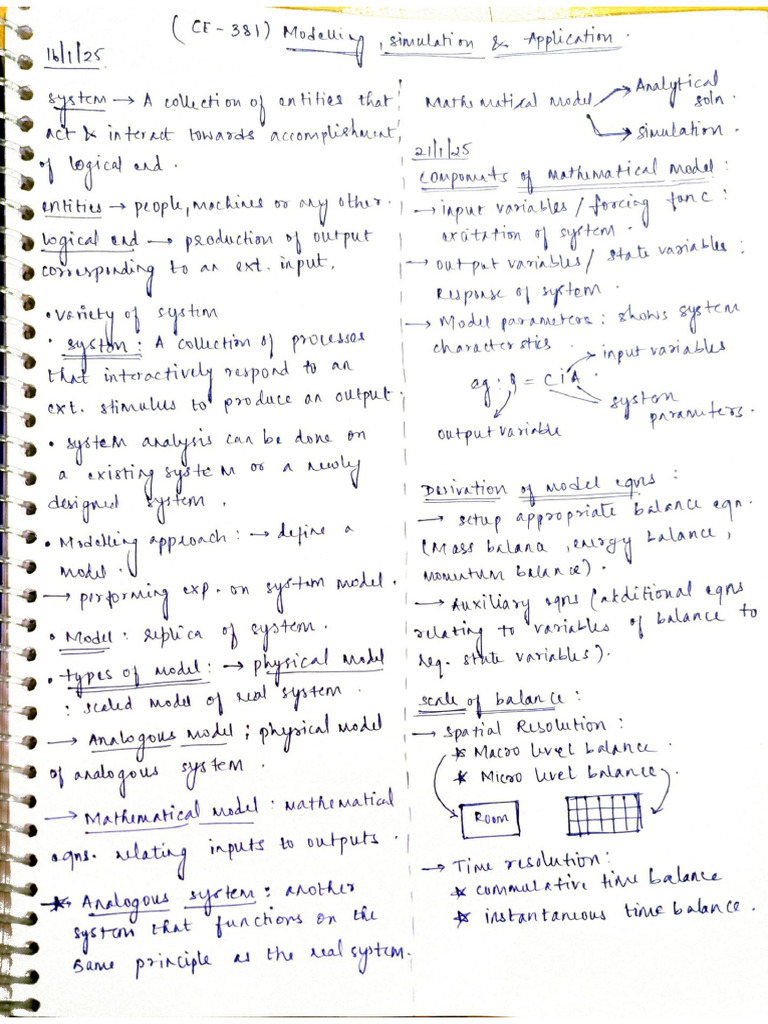 (CE-381) Modelling, simulation & Application.
16/1/25.
system → A collection of entities that
act & interact towards accomplishment
of logical end.
entities → people, machines or any other.
logical end → production of output
corresponding to an ext. input.
• variety of system
• system: A collection of processes
that interactively respond to an
ext. stimulus to produce an output.
• system analysis can be done on
a existing system or a newly
designed system.
• Modelling approach: → define a
model.
→ performing exp. on system model.
• Model: replica of system.
• types of model: → physical model
: scaled model of real system.
→ Analogous model; physical model
of analogous system.
→ Mathematical model: mathematical
eqns. relating inputs to outputs.
* Analogous system: another
system that functions on the
same principle as the real system.
Mathematical model → Analytical
soln.
→ simulation.
21/1/25
components of mathematical model:
→ input variables/forcing func:
excitation of system.
→ output variables/state variables:
Response of system.
→ Model parameters: shows system
characterstics.
→ input variables
eg: q = CiA.
system
parameters.
output variable
Derivation of model eqns:
→ setup appropriate balance eqn.
(Mass balance, energy balance,
momentum balance).
→ Auxiliary eqns (additional eqns
relating to variables of balance to
req. state variables).
scale of balance:
→ spatial Resolution:
* Macro level balance.
* Micro level balance.
Room
→ Time resolution:
* commulative time balance
* instantaneous time balance.